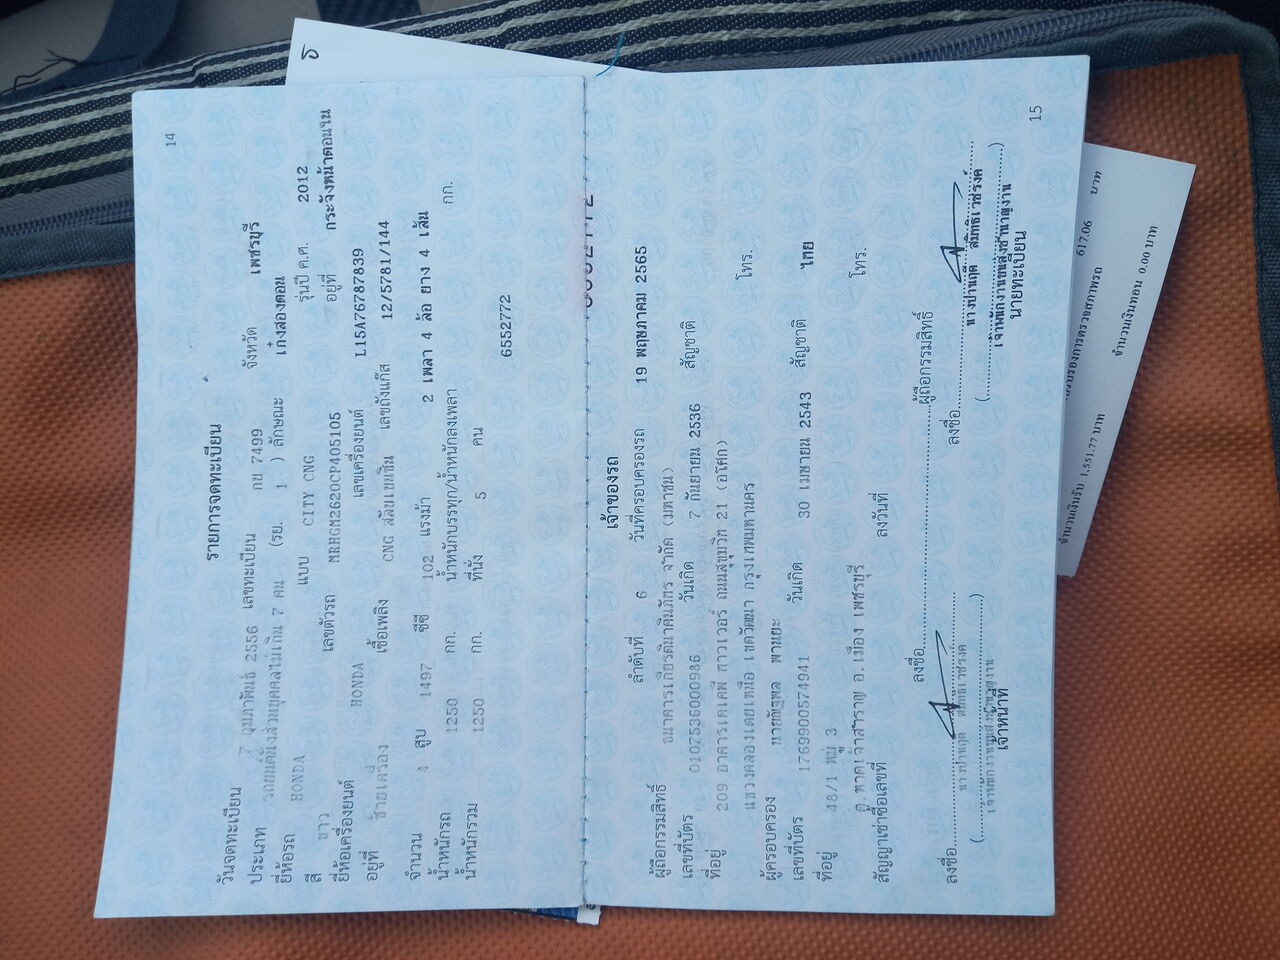 14
รายการจดทะเบียน
วันจดทะเบียน 7 กุมภาพันธ์ 2556 เลขทะเบียน กบ 7499 จังหวัด เพชรบุรี
ประเภท รถยนต์นั่งส่วนบุคคลไม่เกิน 7 คน (รย. 1 ) ลักษณะ เก๋งสองตอน
ยี่ห้อรถ HONDA แบบ CITY CNG รุ่นปี ค.ศ. 2012
สี ขาว เลขตัวรถ MRHGM2620CP405105 อยู่ที่ กระจังหน้าตอนใน
ยี่ห้อเครื่องยนต์ HONDA เลขเครื่องยนต์ L15A76787839
อยู่ที่ ซ้ายเครื่อง เชื้อเพลิง CNG สลับเบนซิน เลขถังแก๊ส 12/5781/144
จำนวน 4 สูบ 1497 ซีซี 102 แรงม้า 2 เพลา 4 ล้อ ยาง 4 เส้น
น้ำหนักรถ 1250 กก. น้ำหนักบรรทุก/น้ำหนักลงเพลา กก.
น้ำหนักรวม 1250 กก. ที่นั่ง 5 คน
6552772
เจ้าของรถ
ลำดับที่ 6 วันที่ครอบครองรถ 19 พฤษภาคม 2565
ผู้ถือกรรมสิทธิ์ ธนาคารเกียรตินาคินภัทร จำกัด (มหาชน)
เลขที่บัตร 0107536000986 วันเกิด 7 กันยายน 2536 สัญชาติ
ที่อยู่ 209 อาคารเคเคพี ทาวเวอร์ ถนนสุขุมวิท 21 (อโศก)
แขวงคลองเตยเหนือ เขตวัฒนา กรุงเทพมหานคร โทร.
ผู้ครอบครอง นายณัฐพล พานยะ
เลขที่บัตร 1769900574941 วันเกิด 30 เมษายน 2543 สัญชาติ ไทย
ที่อยู่ 48/1 หมู่ 3
ต. หาดเจ้าสำราญ อ.เมือง เพชรบุรี โทร.
สัญญาเช่าซื้อเลขที่ ลงวันที่
ลงชื่อ ผู้ถือกรรมสิทธิ์
ลงชื่อ ลงชื่อ
เจ้าหน้าที่ นายทะเบียน
15
617.06 บาท
จำนวนเงินรับ 1,551.77 บาท จำนวนเงินทอน 0.00 บาท